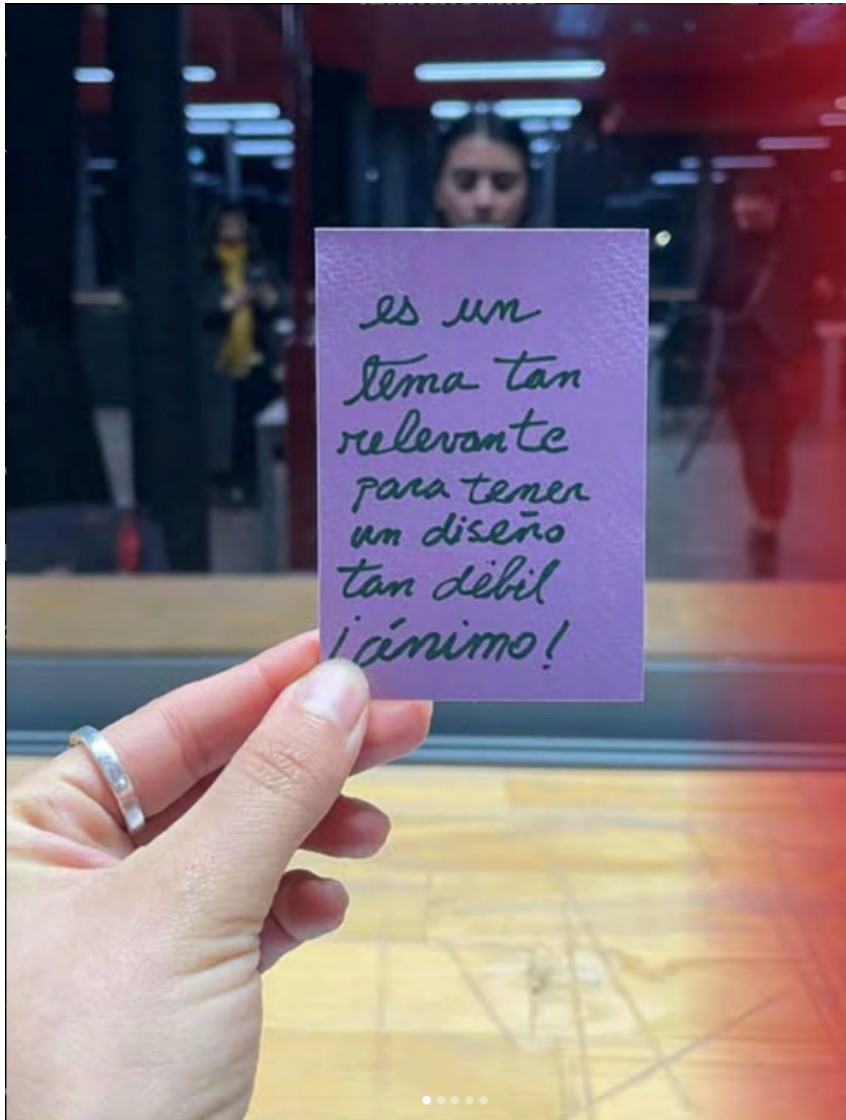 es un
tema tan
relevante
para tener
un diseño
tan débil
¡ánimo!